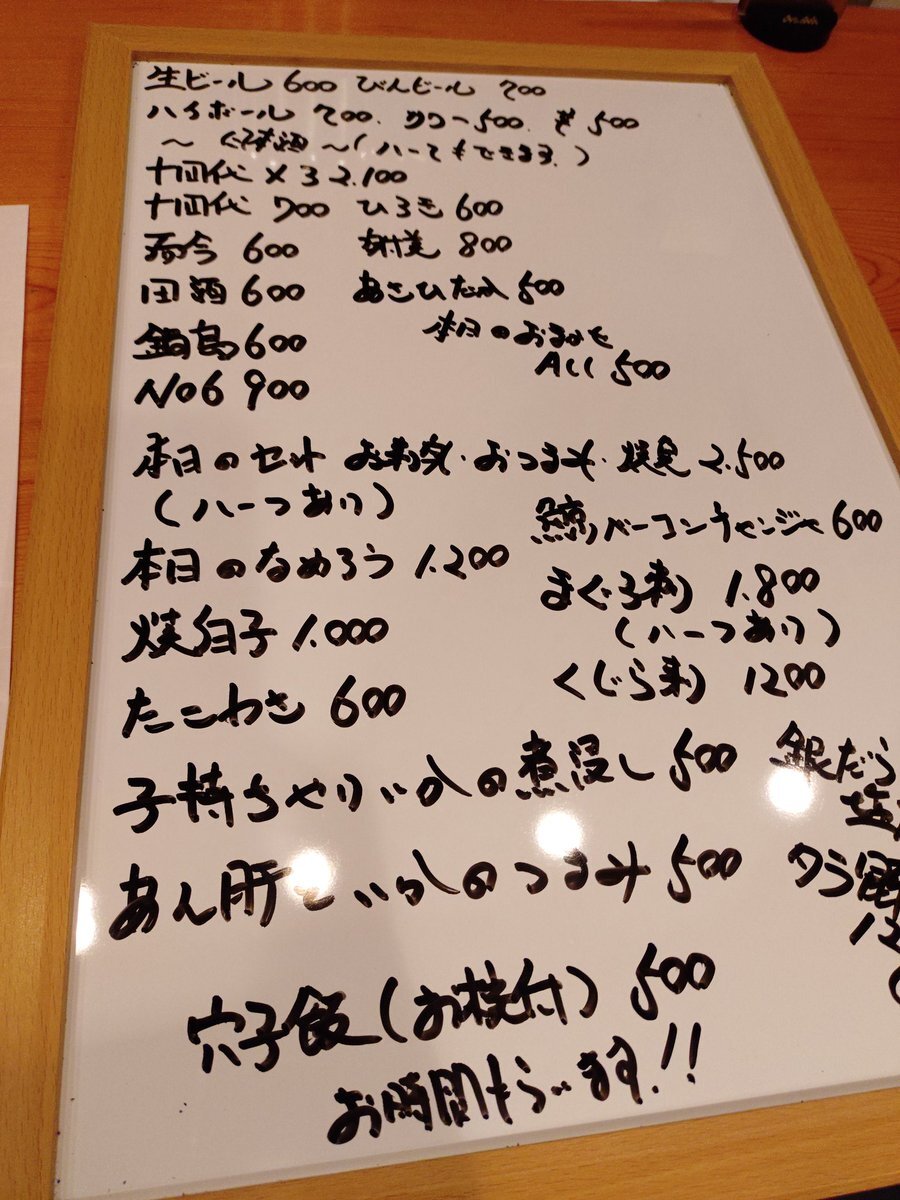 生ビール 600 びんビール 700
ハイボール 700. サワー 500. 500
〜 〜(ハーフもできます。)
十四代 × 3 2.100
十四代 700 ひろき 600
而今 600 800
田酒 600 あさひたか 500
鍋島 600 本日のおまかせ
All 500
No6 900
本日のセット お刺身・おつまみ・焼魚 2.500
(ハーフあり)
鯨バーコンチャレンジャー 600
本日のなめろう 1.200
まぐろ刺 1.800
(ハーフあり)
焼白子 1.000
くじら刺 1200
たこわさ 600
子持ちやりいかの煮浸し 500
銀だら
塩
あん肝といかのつまみ 500
タラ
12
穴子飯(お椀付) 500
お時間もらいます!!